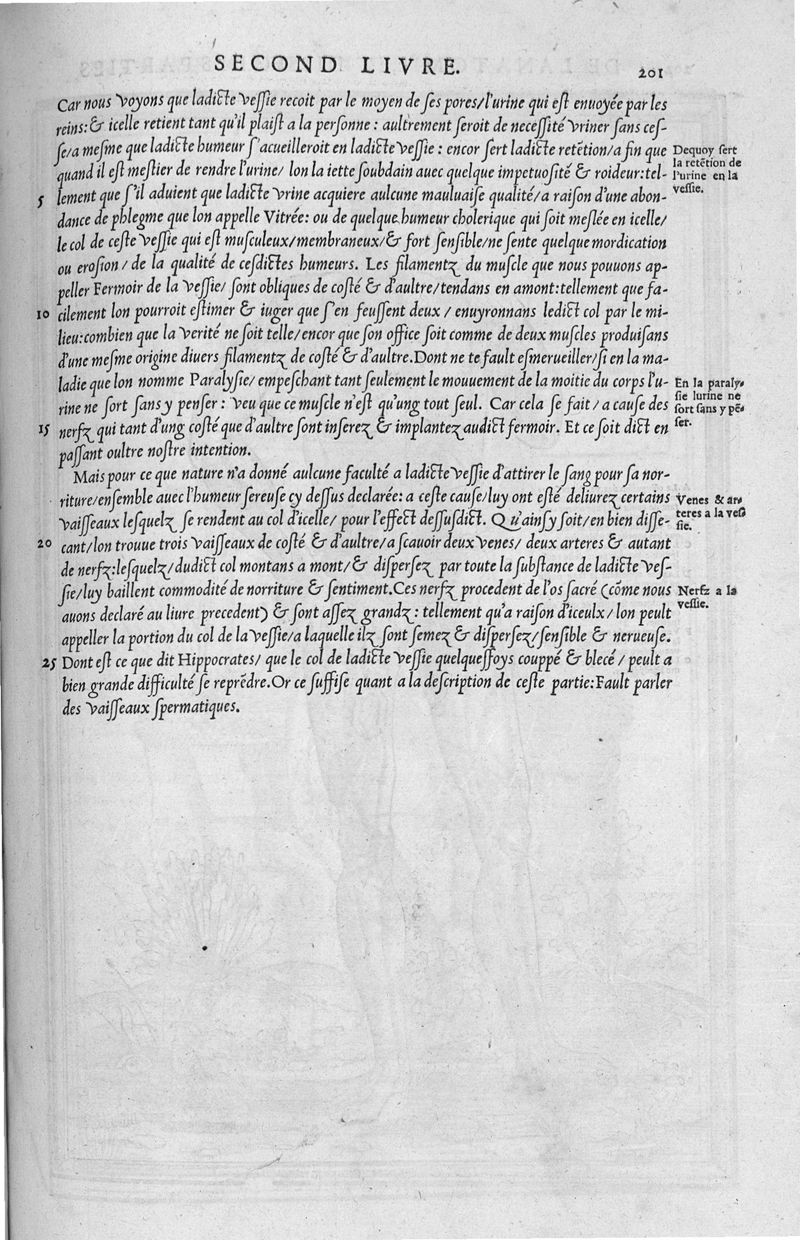 SECOND LIVRE.
201
Car nous voyons que ladicte vessie recoit par le moyen de ses pores/l'urine qui est enuoyée par les
reins:& icelle retient tant qu'il plaist a la personne : aultrement seroit de necessité vriner sans ces-
se/a mesme que ladicte humeur s'acueilleroit en ladicte vessie : encor sert ladicte retētion/a fin que
quand il est mestier de rendre l'urine/ lon la iette soubdain auec quelque impetuosité & roideur:tel-
5 lement que s'il aduient que ladicte vrine acquiere aulcune mauluaise qualité/a raison d'une abon-
dance de phlegme que lon appelle Vitrée: ou de quelque humeur cholerique qui soit meslée en icelle/
le col de ceste vessie qui est musculeux/membraneux/& fort sensible/ne sente quelque mordication
ou erosion/ de la qualité de cesdictes humeurs. Les filamentz du muscle que nous pouuons ap-
peller Fermoir de la vessie/ sont obliques de costé & d'aultre/tendans en amont:tellement que fa-
10 cilement lon pourroit estimer & iuger que s'en feussent deux / enuyronnans ledict col par le mi-
lieu:combien que la verité ne soit telle/encor que son office soit comme de deux muscles produisans
d'une mesme origine diuers filamentz de costé & d'aultre.Dont ne te fault esmerueiller/si en la ma-
ladie que lon nomme Paralysie/ empeschant tant seulement le mouuement de la moitie du corps l'u-
rine ne sort sans y penser : veu que ce muscle n'est qu'ung tout seul. Car cela se fait/ a cause des
15 nerfz qui tant d'ung costé que d'aultre sont inserez & implantez audict fermoir. Et ce soit dict en
passant oultre nostre intention.
Mais pour ce que nature n'a donné aulcune faculté a ladicte vessie d'attirer le sang pour sa nor-
riture/ensemble auec l'humeur sereuse cy dessus declarée: a ceste cause/luy ont esté deliurez certains
vaisseaux lesquelz se rendent au col d'icelle/ pour l'effect dessusdict. Qu'ainsy soit/en bien disse-
20 cant/lon trouue trois vaisseaux de costé & d'aultre/a scauoir deux venes/ deux arteres & autant
de nerfz:lesquelz/dudict col montans a mont/& dispersez par toute la substance de ladicte ves-
sie/luy baillent commodité de norriture & sentiment.Ces nerfz procedent de l'os sacré (cōme nous
auons declaré au liure precedent) & sont assez grandz : tellement qu'a raison d'iceulx/ lon peult
appeller la portion du col de la vessie/a laquelle ilz sont semez & dispersez/sensible & nerueuse.
25 Dont est ce que dit Hippocrates/ que le col de ladicte vessie quelquesfoys couppé & blecé / peult a
bien grande difficulté se reprēdre.Or ce suffise quant a la description de ceste partie:Fault parler
des vaisseaux spermatiques.
Dequoy sert
la retētion de
l'urine en la
vessie.
En la paraly-
sie lurine ne
sort sans y pē-
ser.
Venes & ar-
teres a la ves-
sie.
Nerfz a la
vessie.